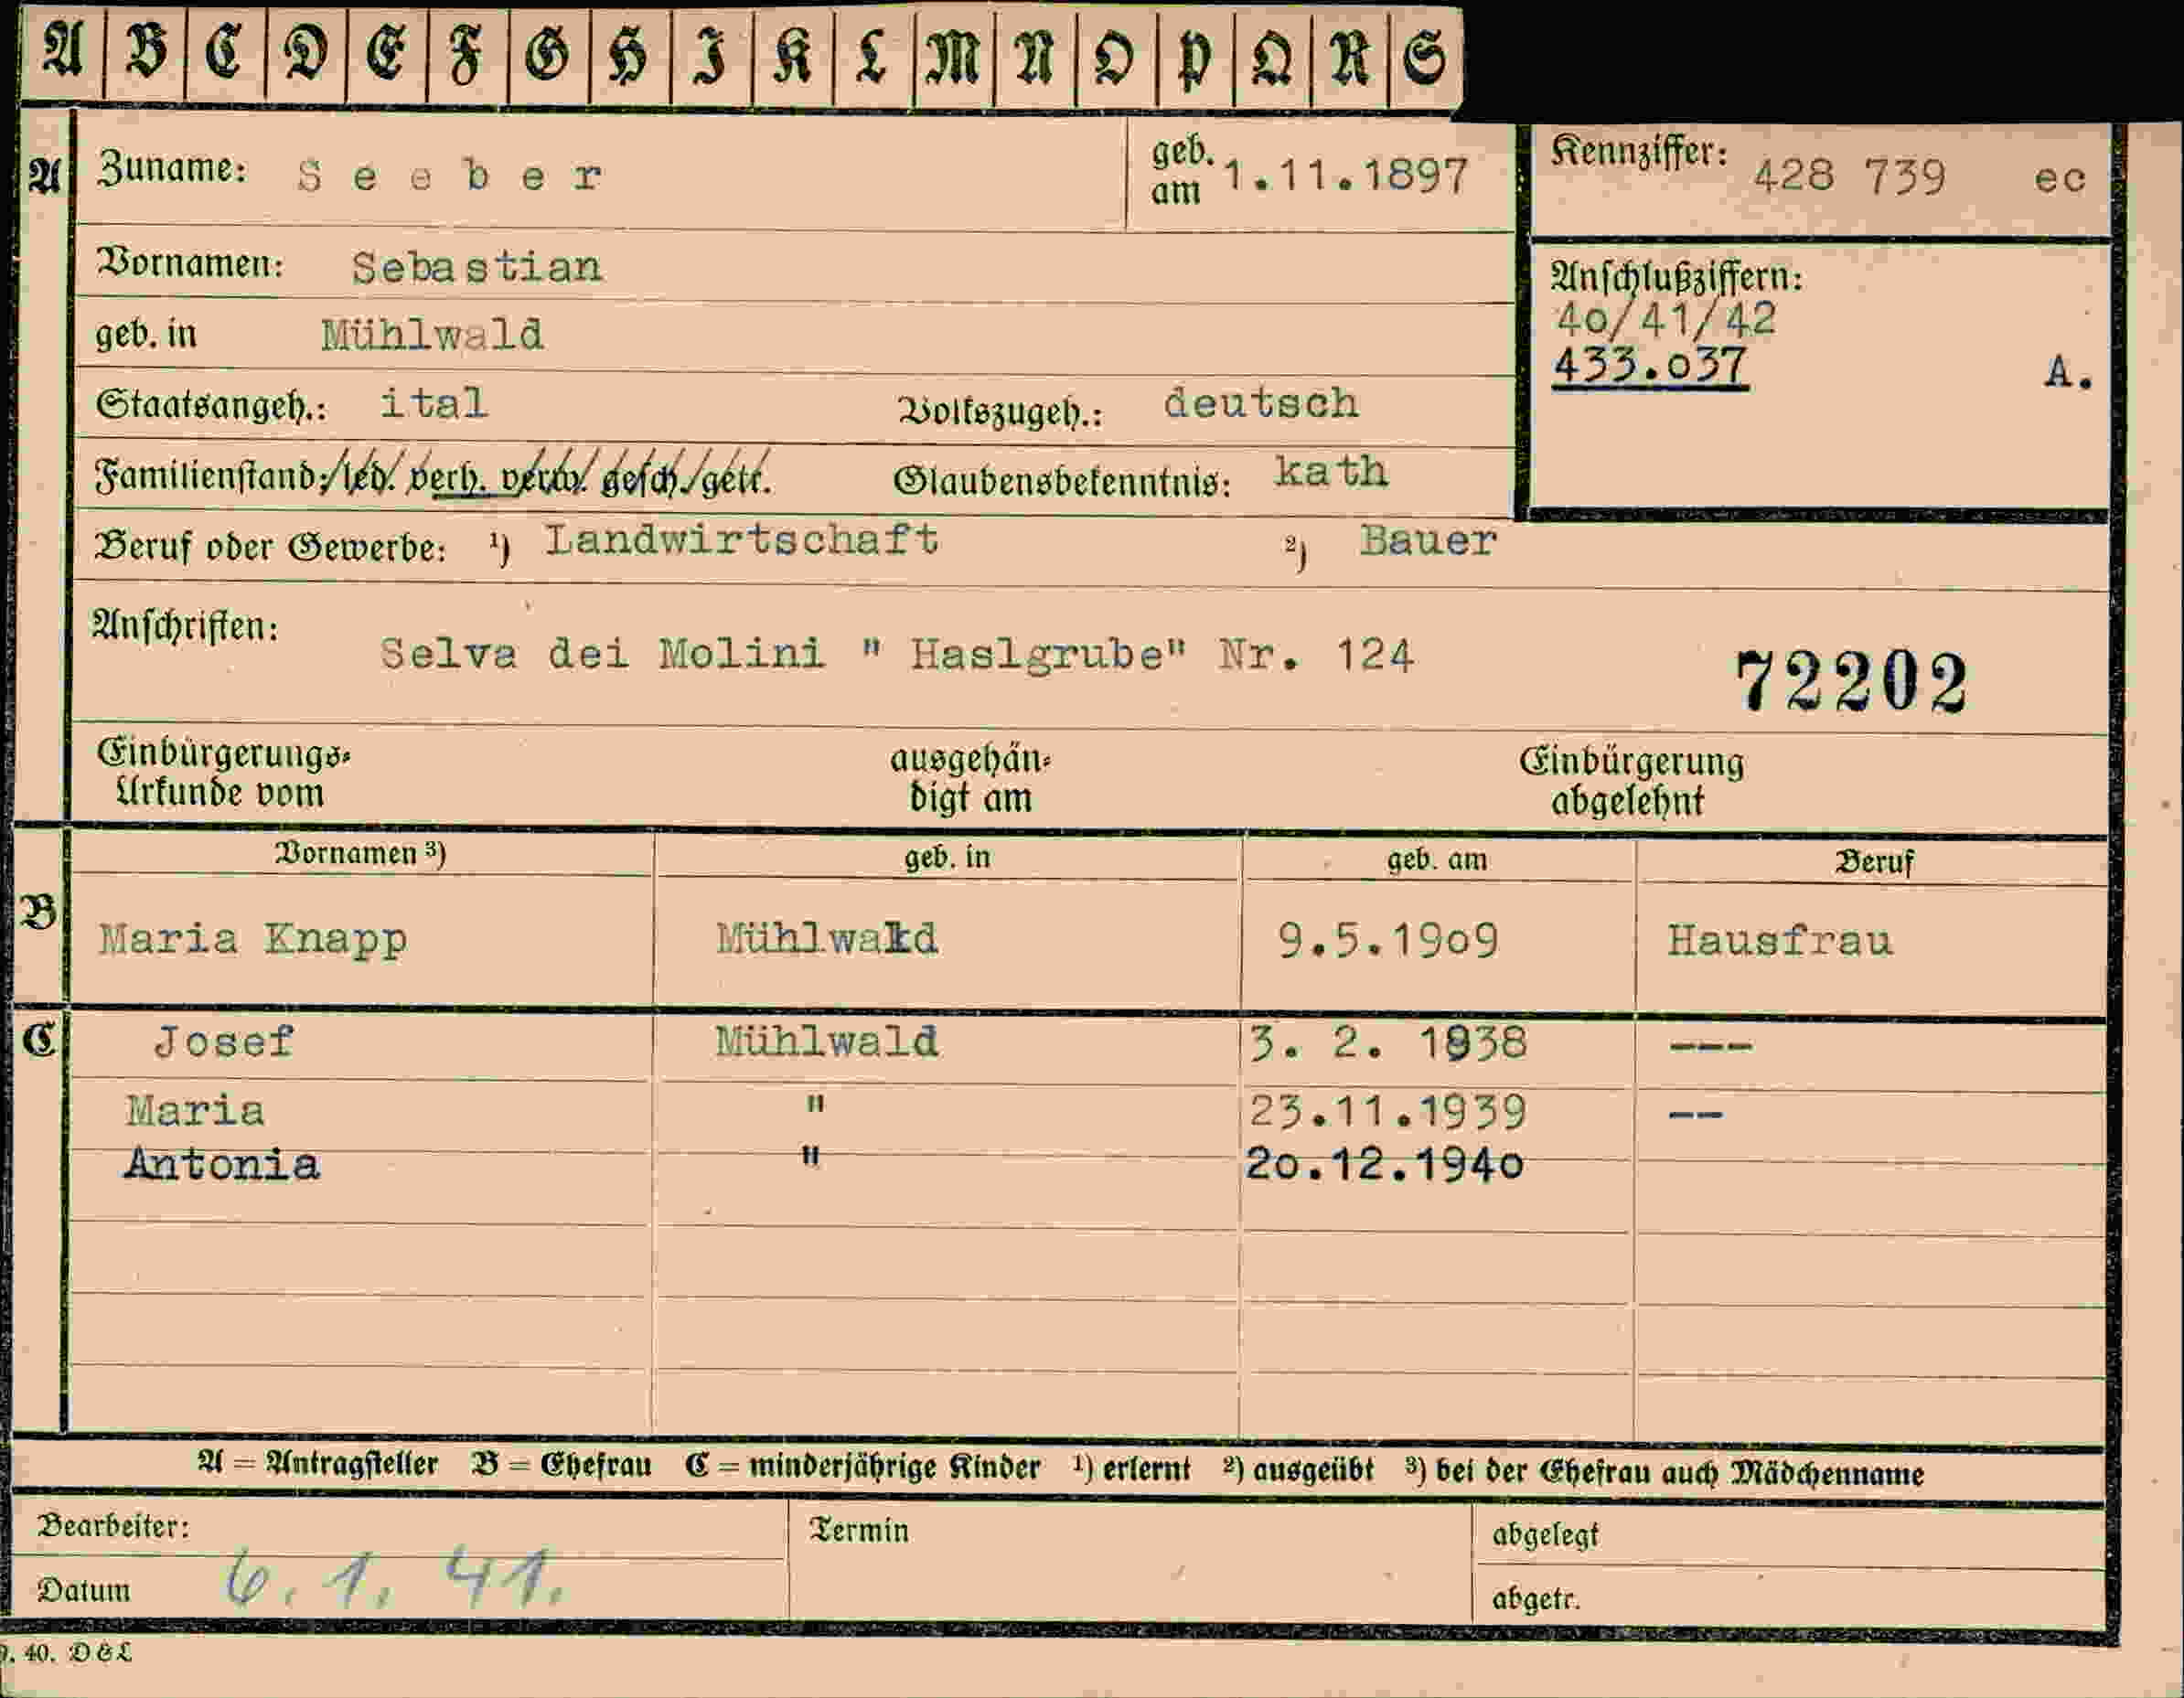 A B C D E F G H I K L M N O P Q R S
A Zuname: Seeber geb. am 1.11.1897 Kennziffer: 428 739 ec
Vornamen: Sebastian
Anschlußziffern:
40/41/42
433.037 A.
geb. in Mühlwald
Staatsangeh.: ital Volkszugeh.: deutsch
Familienstand: led. verh. verw. gesch. getr. Glaubensbekenntnis: kath
Beruf oder Gewerbe: 1) Landwirtschaft 2) Bauer
Anschriften: Selva dei Molini " Haslgrube" Nr. 124 72202
Einbürgerungs-
Urkunde vom
ausgehän-
digt am
Einbürgerung
abgelehnt
Vornamen 3) geb. in geb. am Beruf
B Maria Knapp Mühlwald 9.5.1909 Hausfrau
C Josef Mühlwald 3. 2. 1938 ---
Maria " 23.11.1939 --
Antonia " 20.12.1940
A = Antragsteller B = Ehefrau C = minderjährige Kinder 1) erlernt 2) ausgeübt 3) bei der Ehefrau auch Mädchenname
Bearbeiter: Termin abgelegt
Datum 6. 1. 41. abgetr.
40. D & L